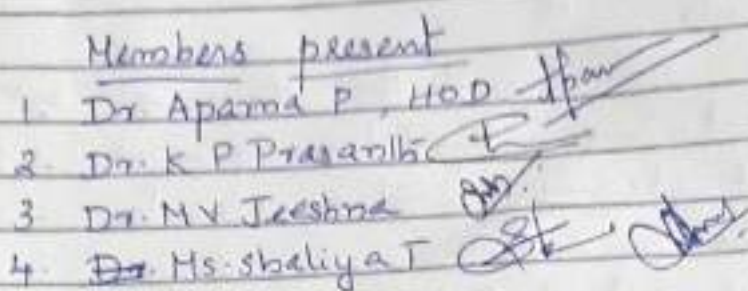 Members present
1. Dr Aparna P, HOD
2. Dr. K P Prasanth
3 Dr. M V Jeeshna
4. Ms. Shaliya T